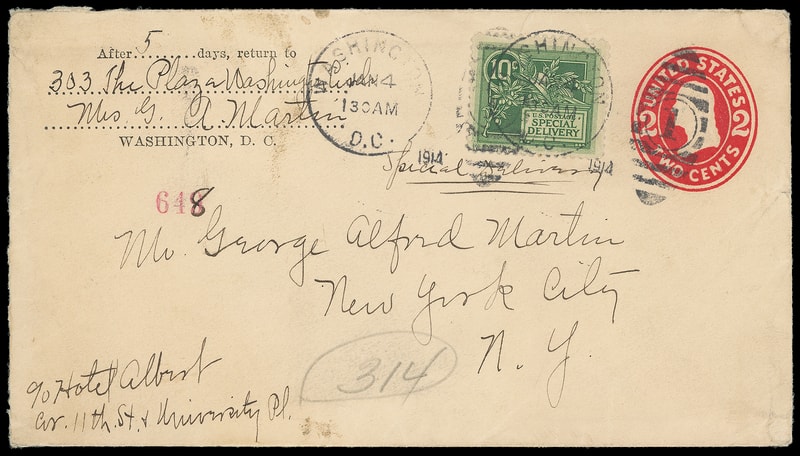 After 5 days, return to
303 The Plaza Washington
Mrs. G. A. Martin
WASHINGTON, D. C.
WASHINGTON
JAN 4
1 30AM
D.C.
1914
10c
U.S. POSTAGE
SPECIAL
DELIVERY
1914
UNITED STATES
2 2
TWO CENTS
Special Delivery
648
Mr. George Alfred Martin
New York City
N. Y.
314
c/o Hotel Albert
Cor. 11th. St. & University Pl.